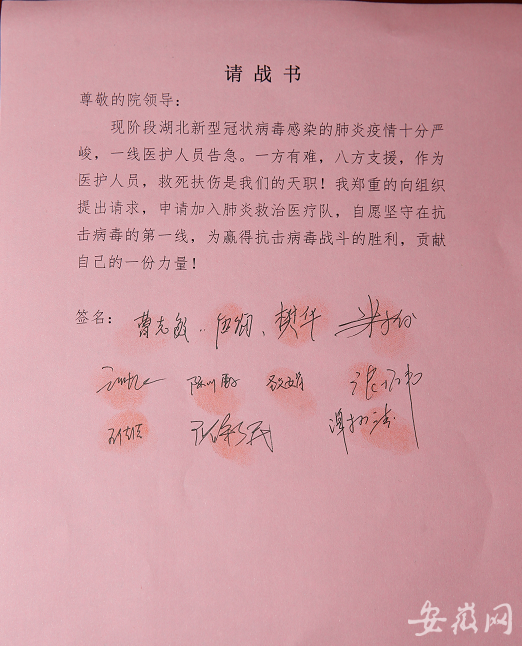 请战书
尊敬的院领导：
现阶段湖北新型冠状病毒感染的肺炎疫情十分严
峻，一线医护人员告急。一方有难，八方支援，作为
医护人员，救死扶伤是我们的天职！我郑重的向组织
提出请求，申请加入肺炎救治医疗队，自愿坚守在抗
击病毒的第一线，为赢得抗击病毒战斗的胜利，贡献
自己的一份力量！
签名：曹志敏 樊华
安徽网